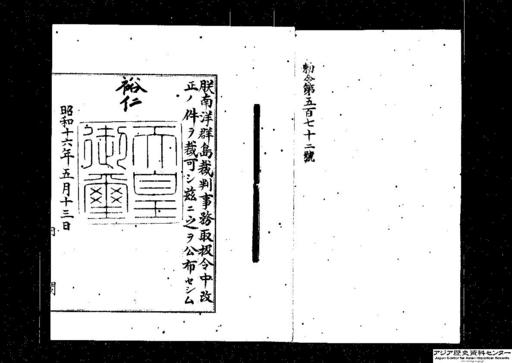 勅令第五百七十二號
朕南洋群島裁判事務取扱令中改
正ノ件ヲ裁可シ茲ニ之ヲ公布セシム
裕仁
天皇
御璽
昭和十六年五月十三日
閣
アジア歴史資料センター
Japan Center for Asian Historical Records